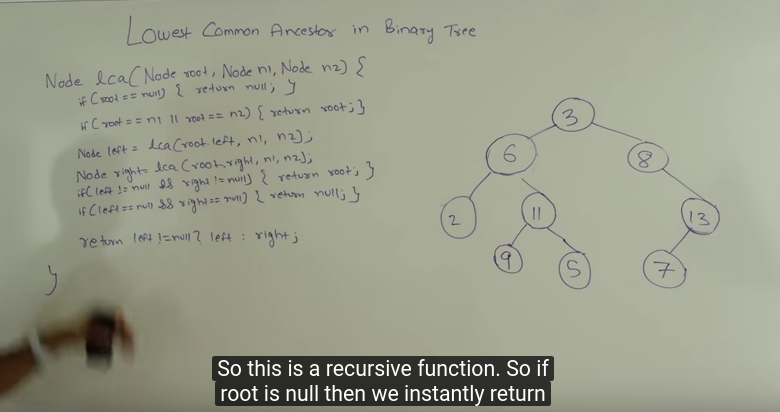 Lowest Common Ancestor in Binary Tree
Node lca(Node root, Node n1, Node n2) {
if(root == null) { return null; }
if(root == n1 || root == n2) { return root; }
Node left = lca(root.left, n1, n2);
Node right = lca(root.right, n1, n2);
if(left != null && right != null) { return root; }
if(left == null && right == null) { return null; }
return left != null ? left : right;
}
3
6
8
2
11
13
9
5
7
So this is a recursive function. So if
root is null then we instantly return